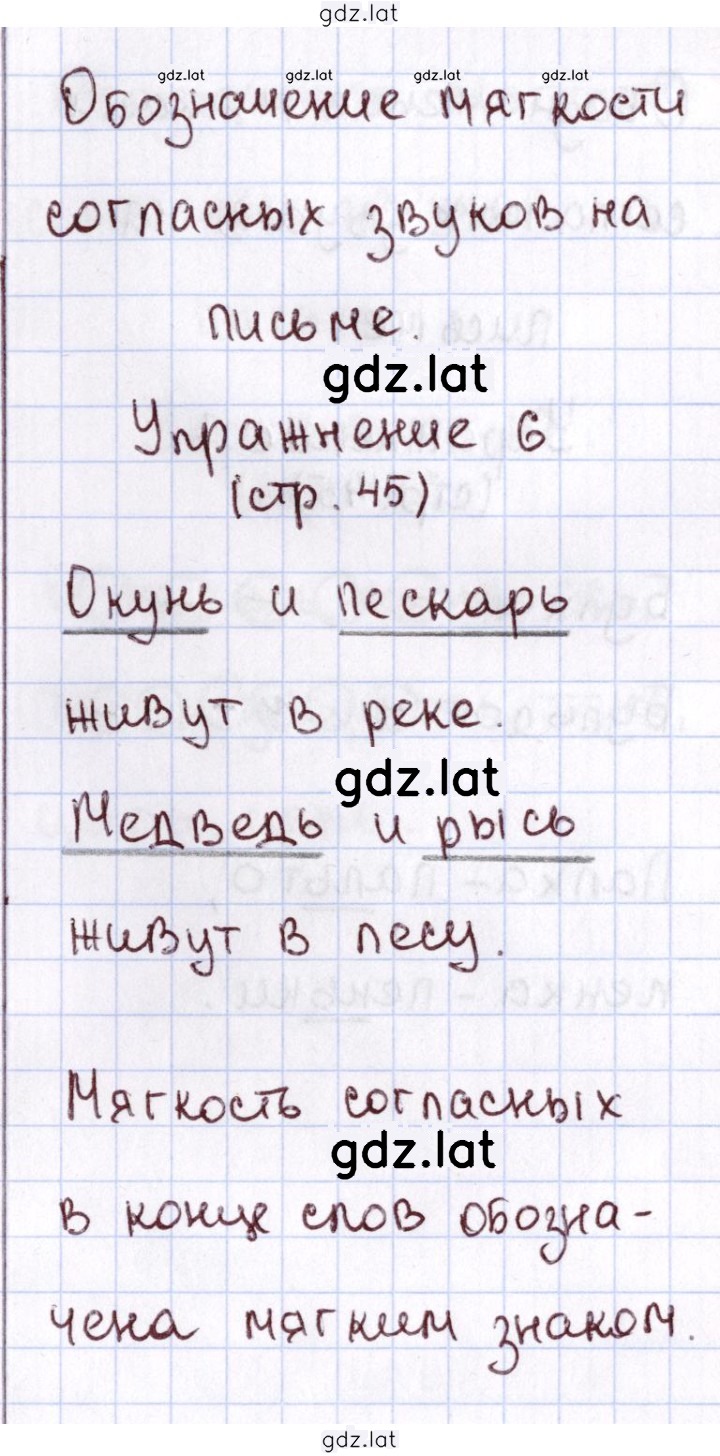 gdz.lat
gdz.lat gdz.lat gdz.lat gdz.lat
Обозначение мягкости
согласных звуков на
письме.
gdz.lat
Упражнение 6
(стр. 45)
Окунь и пескарь
живут в реке.
gdz.lat
Медведь и рысь
живут в лесу.
Мягкость согласных
gdz.lat
в конце слов обозна-
чена мягким знаком.
gdz.lat